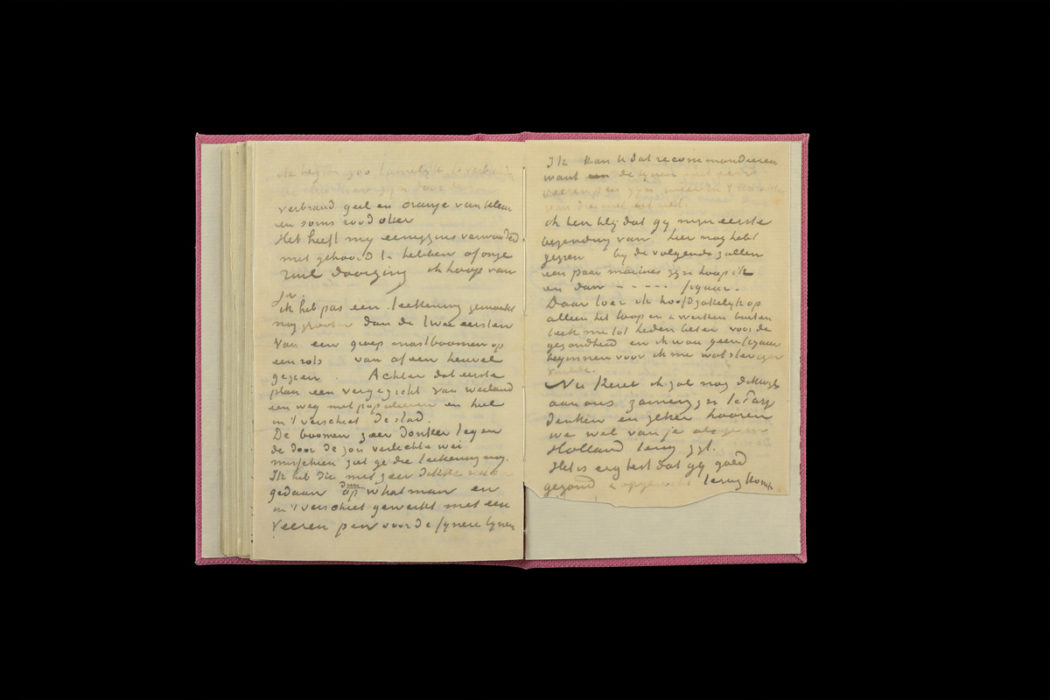 verbrand geel en oranje van kleur
en soms rood oker
Het heeft my eenigzins verwonderd
met gehoord te hebben of onze
ruil doorging ik hoop van
ja
ik heb pas een teekening gemaakt
nog grooter dan de twee eersten
Van een groep mastboomen op
een rots van af een heuvel
gezien. Achter dat eerste
plan een vergezicht van weiland
een weg met populieren en heel
in 't verschiet de stad.
De boomen zeer donker tegen
de door de zon verlichte wei
misschien zal ge die teekening nog
Ik heb die met zeer dikke
gedaan op whatman en
in 't verschiet gewerkt met een
veeren pen voor de fynere lynen
Ik kan U dat recommandeeren
want de lynen met
veeren pen zyn meer in 't
ik ben bly dat gy myn eerste
bezending van hier nog hebt
gezien by de volgende zullen
een paar marines zyn hoop ik
en dan - - - - - figuur.
Daar loer ik hoofdzakelyk op
alleen het loop en werken buiten
leek me tot heden beter voor de
gezondheid en ik wou geen figuur
beginnen voor ik me wat steviger
voelde.
Nu Kerel ik zal nog dikwyls
aan ons zamenzyn te Parys
denken en zeker hooren
we wel van je als ge in
Holland terug zyt.
Het is erg best dat gy goed
gezond & opgewekt terug komt